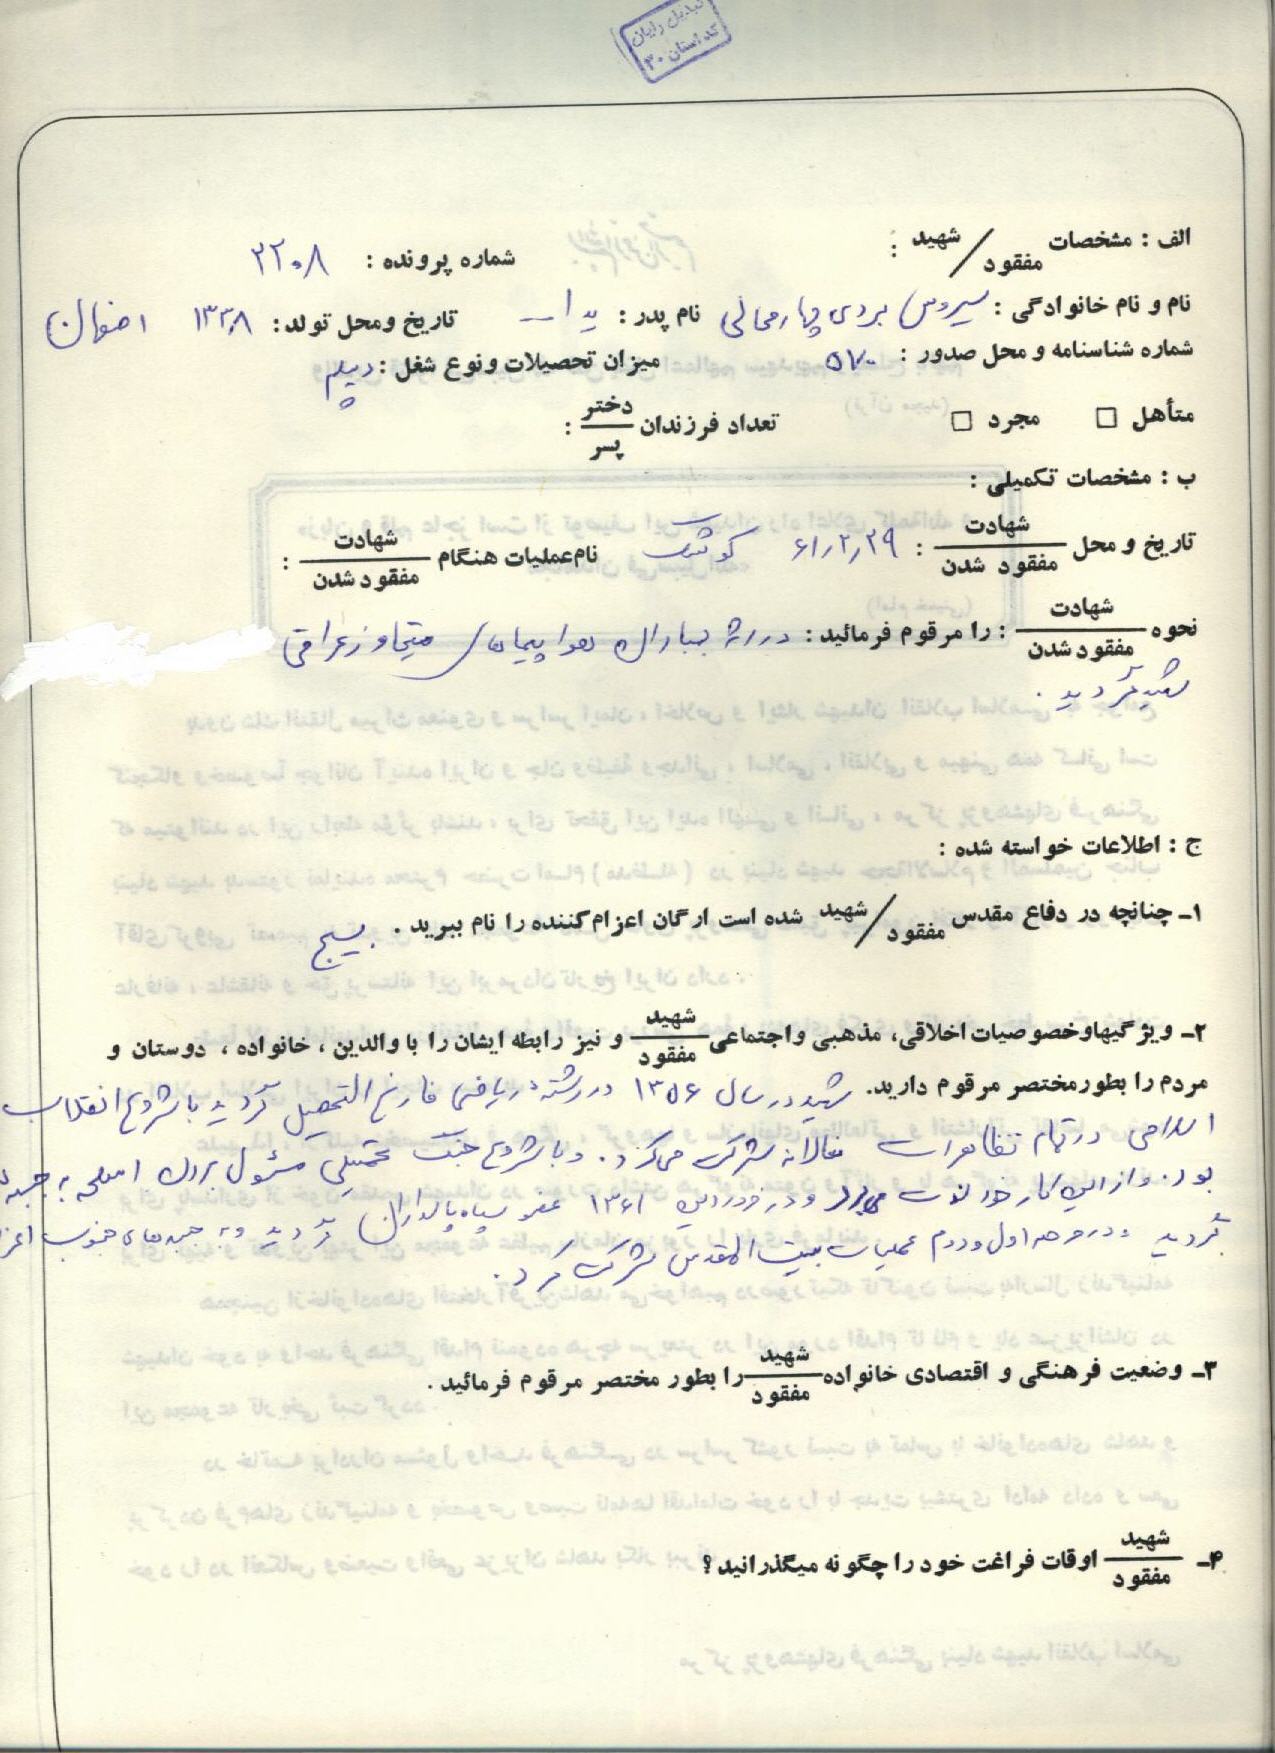 تبدیل رایان
کد استان ۳۰
الف : مشخصات شهید/مفقود :
شماره پرونده : ۲۲۰۸
نام و نام خانوادگی : سیروس بردی چهارمحالی نام پدر : یدا... تاریخ و محل تولد : ۱۳۳۸ اصفهان
شماره شناسنامه و محل صدور : ۵۷۰ میزان تحصیلات و نوع شغل : دیپلم
متأهل □ مجرد □ تعداد فرزندان دختر/پسر :
ب : مشخصات تکمیلی :
تاریخ و محل شهادت/مفقود شدن : ۶۱/۲/۲۹ کوشک نام عملیات هنگام شهادت/مفقود شدن :
نحوه شهادت/مفقود شدن : را مرقوم فرمائید : در اثر بمباران هوا پیماهای متجاوز عراقی
شهید گردید .
ج : اطلاعات خواسته شده :
۱ـ چنانچه در دفاع مقدس شهید/مفقود شده است ارگان اعزام کننده را نام ببرید . بسیج
۲ـ ویژگیها و خصوصیات اخلاقی، مذهبی و اجتماعی شهید/مفقود و نیز رابطه ایشان را با والدین ، خانواده ، دوستان و
مردم را بطور مختصر مرقوم دارید. شهید در سال ۱۳۵۶ در رشته ریاضی فارغ التحصیل گردید با شروع انقلاب
اسلامی در تمام تظاهرات فعالانه شرکت می کرد . و با شروع جنگ تحمیلی مسئول بردن اسلحه به جبهه
بود. و از این کار خود لذت می برد و در فروردین ۱۳۶۱ عضو سپاه پاسداران گردید و به جبهه های جنوب
گردید و در مرحله اول و دوم عملیات بیت المقدس شرکت کرد .
۳ـ وضعیت فرهنگی و اقتصادی خانواده شهید/مفقود را بطور مختصر مرقوم فرمائید .
۴ـ شهید/مفقود اوقات فراغت خود را چگونه میگذرانید؟